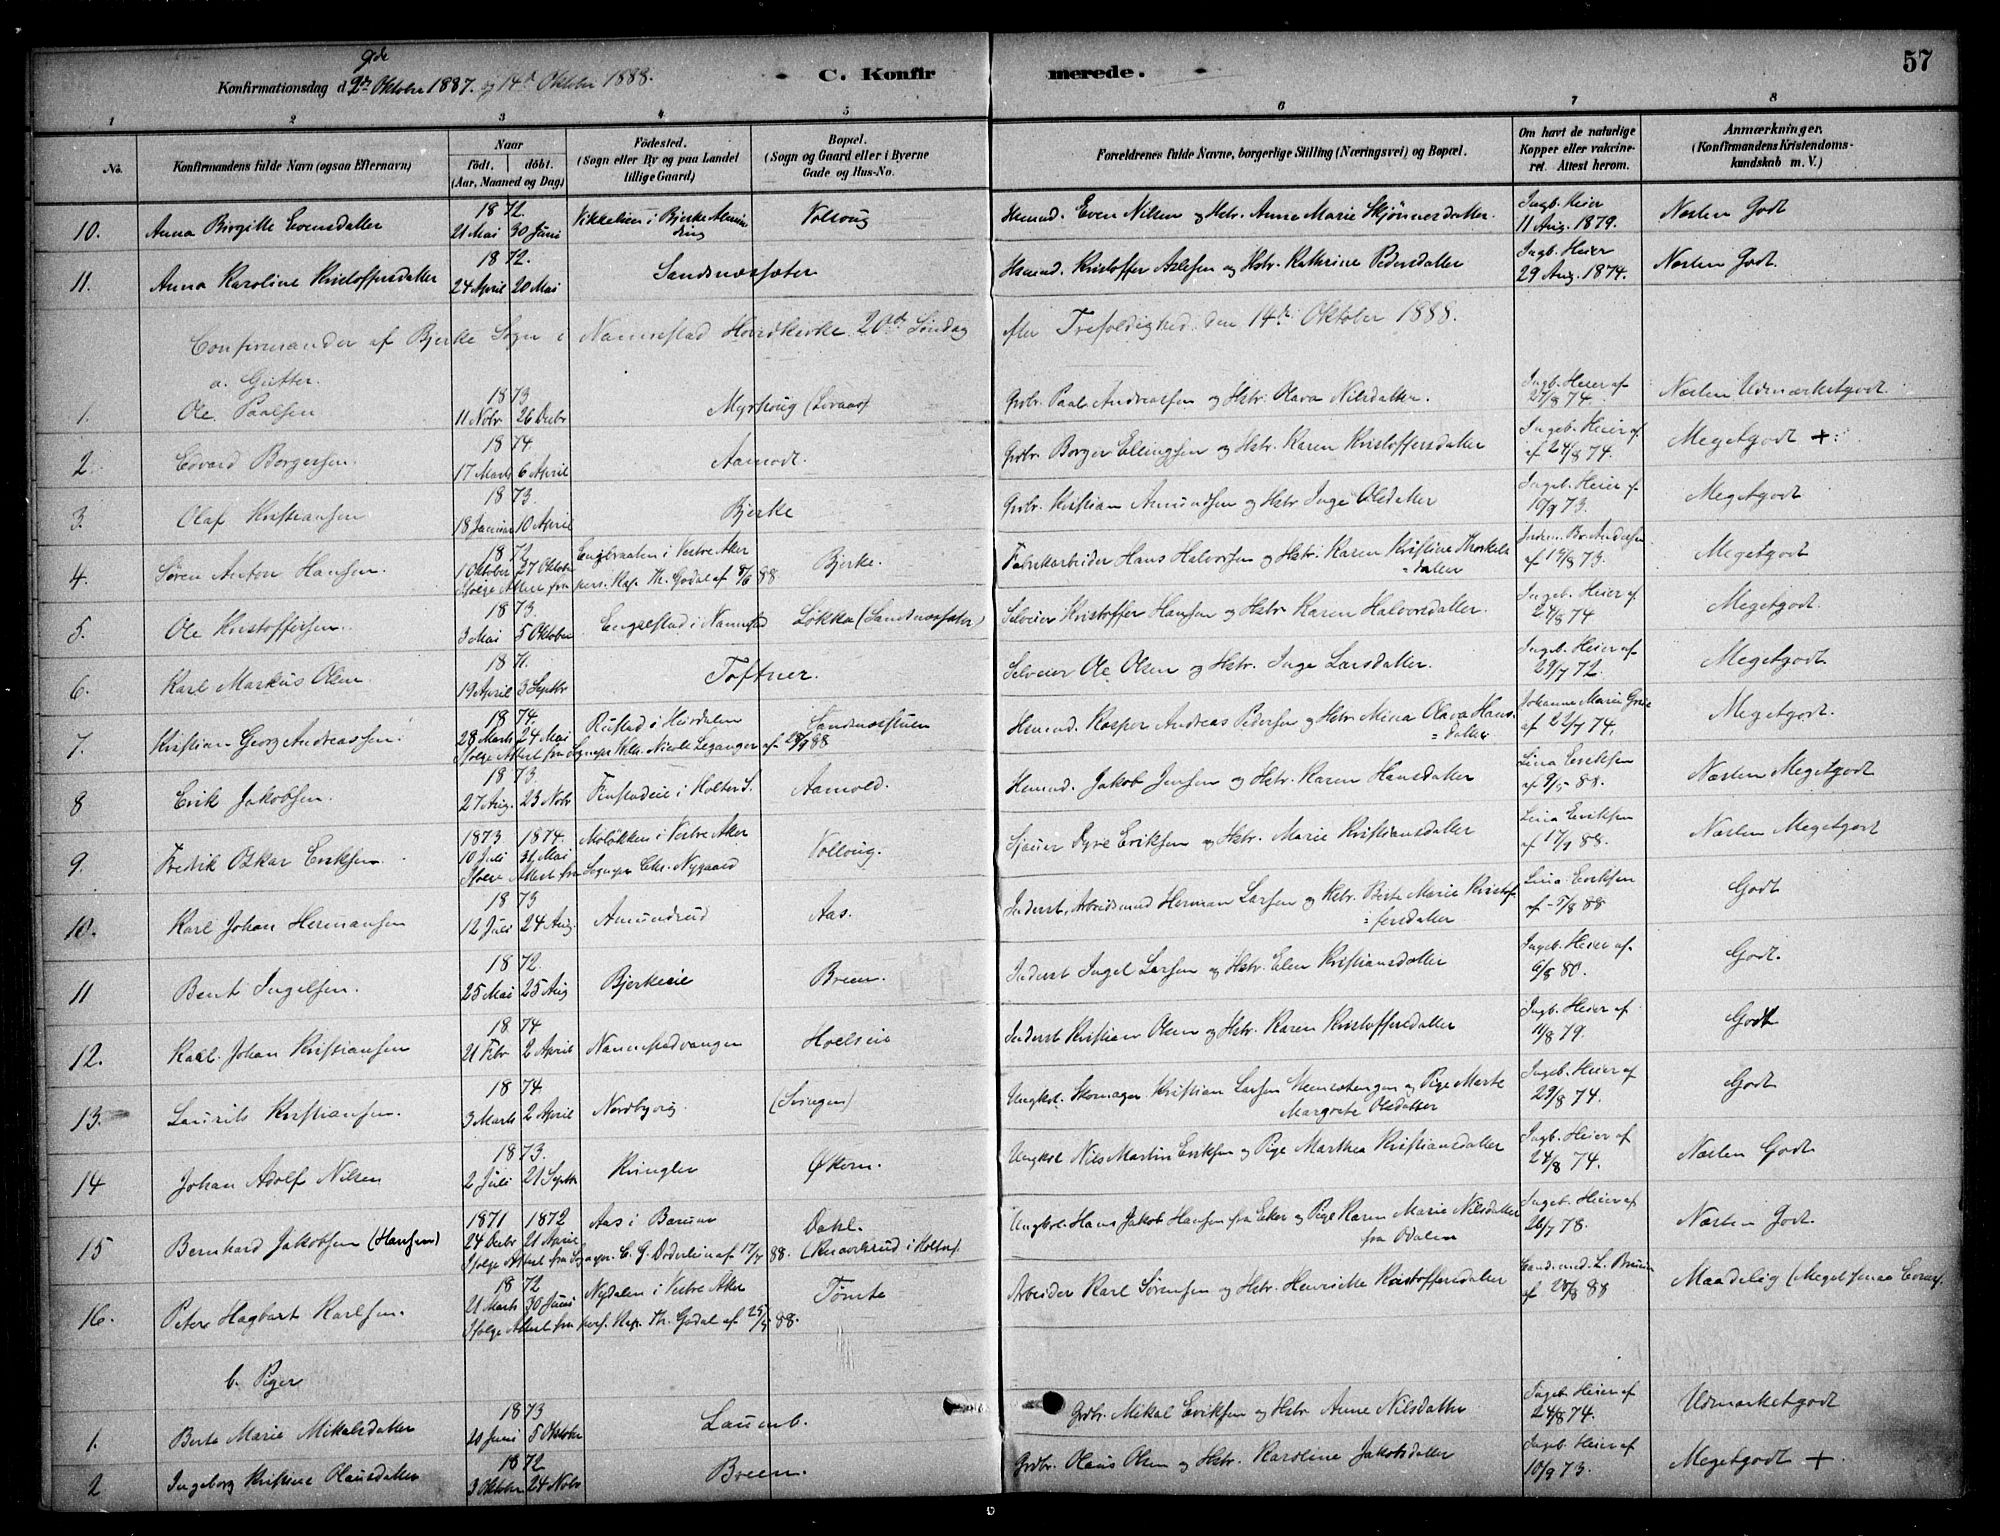 57
Konfirmationsdag d. 9de 2den Oktober 1887. og 14de Oktober 1888.
C. Konfirmerede.
1 2 3 4 5 6 7 8
No. Konfirmandens fulde Navn (ogsaa Efternavn) Naar født. døbt. (Aar, Maaned og Dag) Fødested. (Sogn eller By og paa Landet tillige Gaard.) Bopæl. (Sogn og Gaard eller i Byerne Gade og Hus-No. Forældrenes fulde Navne, borgerlige Stilling (Næringsvei) og Bopæl. Om havt de naturlige Kopper eller vakcineret. Attest herom. Anmærkninger. (Konfirmandens Kristendomskundskab m. V.)
10. Anna Birgitte Evensdatter 1872 21 Mai 30 Juni i Bjerke Volloug Husmd. Even Nilsen og Hstr. Anne Marie Skjønnesdatter. Ingb. Heier 11 Aug. 1879. Næsten Godt
11. Anna Karoline Kristoffersdatter 1872. 24 April 20 Mai Sandsnæssæter Husmd. Kristoffer Aslesen og Hstr. Kathrine Pedersdatter Ingb. Heier 29 Aug. 1874. Næsten Godt
Confirmander af Bjerke Sogn i Nannestad Hovedkirke 20de Søndag efter Trefoldighed den 14de Oktober 1888.
a. Gutter.
1. Ole Paalsen 1873 11 Novbr 26 Decbr Myrhoug (Lovaas) Grdbr. Paal Andreassen og Hstr. Olava Nilsdatter. Ingb. Heier af 27/8 74. Næsten Udmærketgodt.
2. Edvard Borgersen. 1874. 17 Marts 6 April Aamodt. Grdbr. Borger Ellingsen og Hstr. Karen Kristoffersdatter Ingeb. Heier af 24/8 74. Megetgodt +
3. Olaf Kristiansen 1873. 18 Januar 10 April Bjerke Grdbr. Kristian Amundsen og Hstr Inge Olsdatter Ingeb. Heier af 10/9 73. Megetgodt
4. Søren Anton Hansen. 1872 1 Oktober 27 Oktober Engebraaten i Vestre Aker Bjerke. Fabrikarbeider Hans Halvorsen og Hstr. Karen Kristine Thorkelsdatter Jordm. Br. Andersen af 19/8 73. Megetgodt
Ifølge Attest fra pers. Kap. Th. Godal af 8/6 88
5. Ole Kristoffersen. 1873. 3 Mai 5 Oktober Engelstad i Nannestad Løkka (Sandsnæssæter) Selveier Kristoffer Hansen og Hstr Karen Halvorsdatter. Ingeb. Heier af 24/8 74 Megetgodt.
6. Karl Markus Olsen 1871. 19 April 3 Septbr Toftner. Selveier Ole Olsen og Hstr. Inge Larsdatter. Ingeb. Heier af 29/7 72. Megetgodt.
7. Kristian Georg Andreassen. 1874. 28 Marts 24 Mai Rustad i Hurdalen Sandnæsstuen Husmd. Kasper Andreas Pedersen og Hstr Mina Olava Hansdatter Johanne Marie af 22/7 74. Megetgodt.
Ifølge Attest fra Sognepr. Nicolai Leganger af 28/9 88
8 Erik Jakobsen. 1873. 27 Aug. 23 Novbr Finstadeie i Holter S. Aamold. Husmd. Jakob Jensen og Hstr. Karen Hansdatter Lina Eriksen af 9/5 88. Næsten Megetgodt
9. Fredrik Oskar Eriksen. 1873 1874. 10 Juli 31 Mai Moløkken i Vestre Aker Volloug. Sjauer Dyre Eriksen og Hstr. Marie Kristiansdatter Lina Eriksen af 17/9 88. Næsten Megetgodt
Ifølge Attest fra Sognepr. Chr. Nygaard
10. Karl Johan Hermansen 1873 12 Juli 24 Aug. Amundrud Aas. Inderst, Arbeidsmand Herman Larsen og Hstr. Berte Marie Kristoffersdatter Lina Eriksen af 5/8 88 Godt
11 Bent Ingelsen. 1872. 25 Mai 25 Aug Bjerkeeie Breen. Inderst Ingel Larsen og Hstr. Elen Kristiansdatter Ingeb. Heier af 6/8 80. Godt.
12. Karl Johan Kristiansen 1874 21 Febr 2 April Nannestadvangen Hoelseie Inderst Kristian Olsen og Hstr. Karen Kristoffersdatter Ingb. Heier af 11/8 79. Godt
13. Laurits Kristiansen. 1874 3 Marts 2 April Nordbyvig (Svingen) Ungkl. Skomager Kristian Larsen og Pige Marte Margrete Olsdatter Ingeb. Heier af 29/8 74. Godt
14 Johan Adolf Nilsen 1873. 2 Juli 21 Septbr Kringler Økern. Ungkl Nils Martin Eriksen og Pige Marthea Kristiansdatter Ingb. Heier af 24/8 74. Næsten Godt
15 Bernhard Jakobsen (Hansen) 1871 1872 24 Decbr 21 April Aas i Bærum Dahl. Ungkl. Hans Jakob Hansen fra Eker og Pige Karen Marie Nilsdatter fra Odalen Ingeb. Heier af 26/7 78. Næsten Godt.
Ifølge Attest fra Sognepr. C. G. Döderlein af 17/9 88. i Holter.
16. Peter Hagbart Karlsen. 1872 21 Marts 30 Juni Nydalen i Vestre Aker Tømte Arbeider Karl Sørensen og Hstr. Henriette Kristoffersdatter Cand. med. L. Bruun af 28/8 88 Maadelig (Meget smaa Evner)
Ifølge Attest fra pers. Kap. Th. Godal af 25/9 88.
b. Piger
1. Berte Marie Mikalsdatter 1873 20 Juni 5 Oktober Lauemb. Grdbr. Mikal Eriksen og Hstr Anne Nilsdatter Ingeb. Heier af 24/8 74. Udmærketgodt
2 Ingeborg Kristine Olausdatter 1872 3 Oktober 24 Novbr Breen. Grdbr. Olaus Olsen og Hstr. Karoline Jakobsdatter Ingeb. Heier af 10/9 73. Megetgodt +